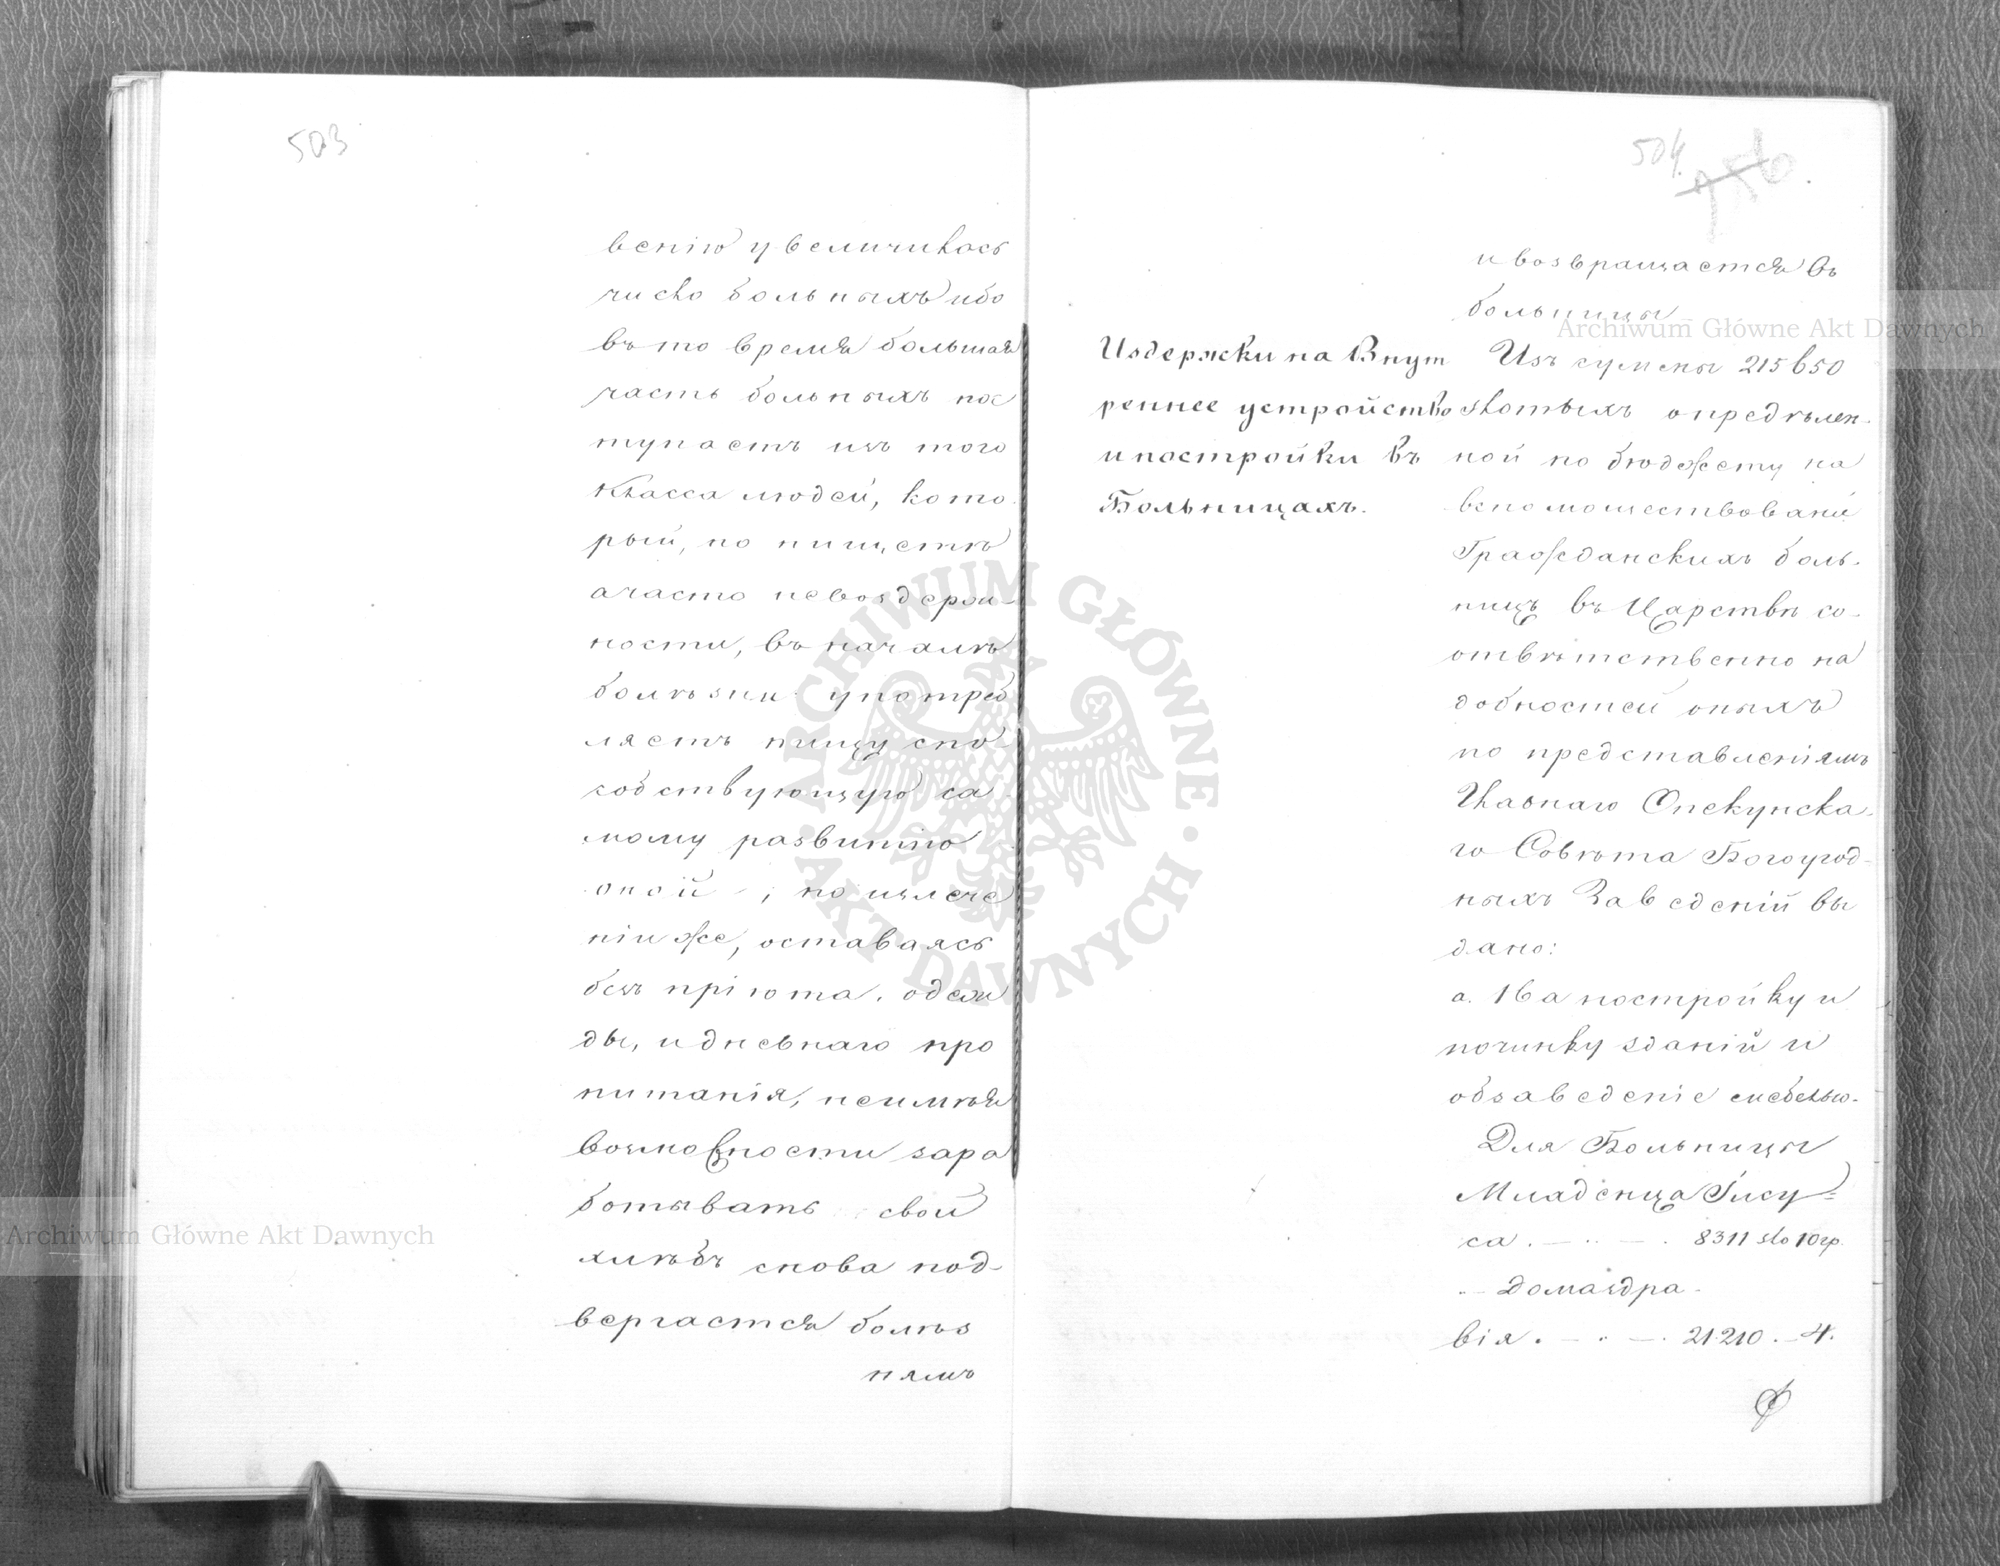 503
венію увеличилось
число больныхъ ибо
въ то время большая
часть больныхъ пос
тупаетъ изъ того
класса людей, кото
рый, по нищетѣ
а часто невоздерж-
ности, въ началѣ
болѣзни употреб
ляетъ пищу спо-
собствующую са-
мому развитію
оной, по излече
ніи же, оставаясь
безъ пріюта, одеж
ды, и дневнаго про
питанія, неимѣя
возможности зара
ботывать свой
хлѣбъ снова под-
вергается болѣз
нямъ
504.
756
и возвращается въ
больницы
Издержки на Внут
реннее устройство
и постройки въ
Больницахъ.
Изъ суммы 215650
злотыхъ опредѣлен-
ной по бюджету на
вспомоществованіи
Гражданскихъ боль-
ницъ въ Царствѣ со-
отвѣтственно на
добностей оныхъ
по представленіямъ
Главнаго Опекунска-
го Совѣта Богоугод-
ныхъ Заведеній вы
дано:
а. На постройку и
починку зданій и
обзаведеніе мебелью.
Для Больницы
Младенца Іису-
са . — .. — . 8311 зло 10 гр.
.. — Домаздра-
вія . — .. — . 21210 . — 4.
Archiwum Główne Akt Dawnych
Archiwum Główne Akt Dawnych
ARCHIWUM GŁÓWNE · AKT DAWNYCH ·